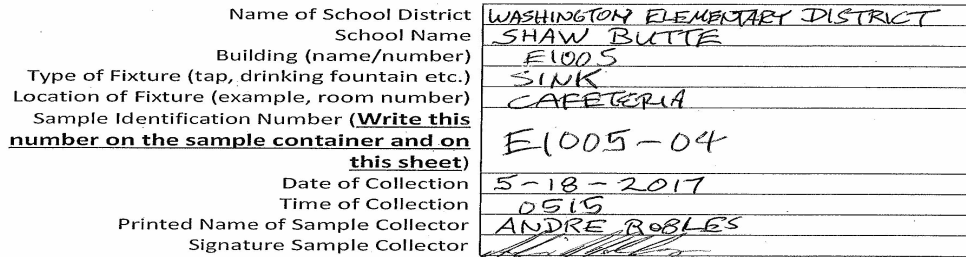 Name of School District WASHINGTON ELEMENTARY DISTRICT
School Name SHAW BUTTE
Building (name/number) E1005
Type of Fixture (tap, drinking fountain etc.) SINK
Location of Fixture (example, room number) CAFETERIA
Sample Identification Number (Write this
number on the sample container and on E1005-04
this sheet)
Date of Collection 5-18-2017
Time of Collection 0515
Printed Name of Sample Collector ANDRE ROBLES
Signature Sample Collector